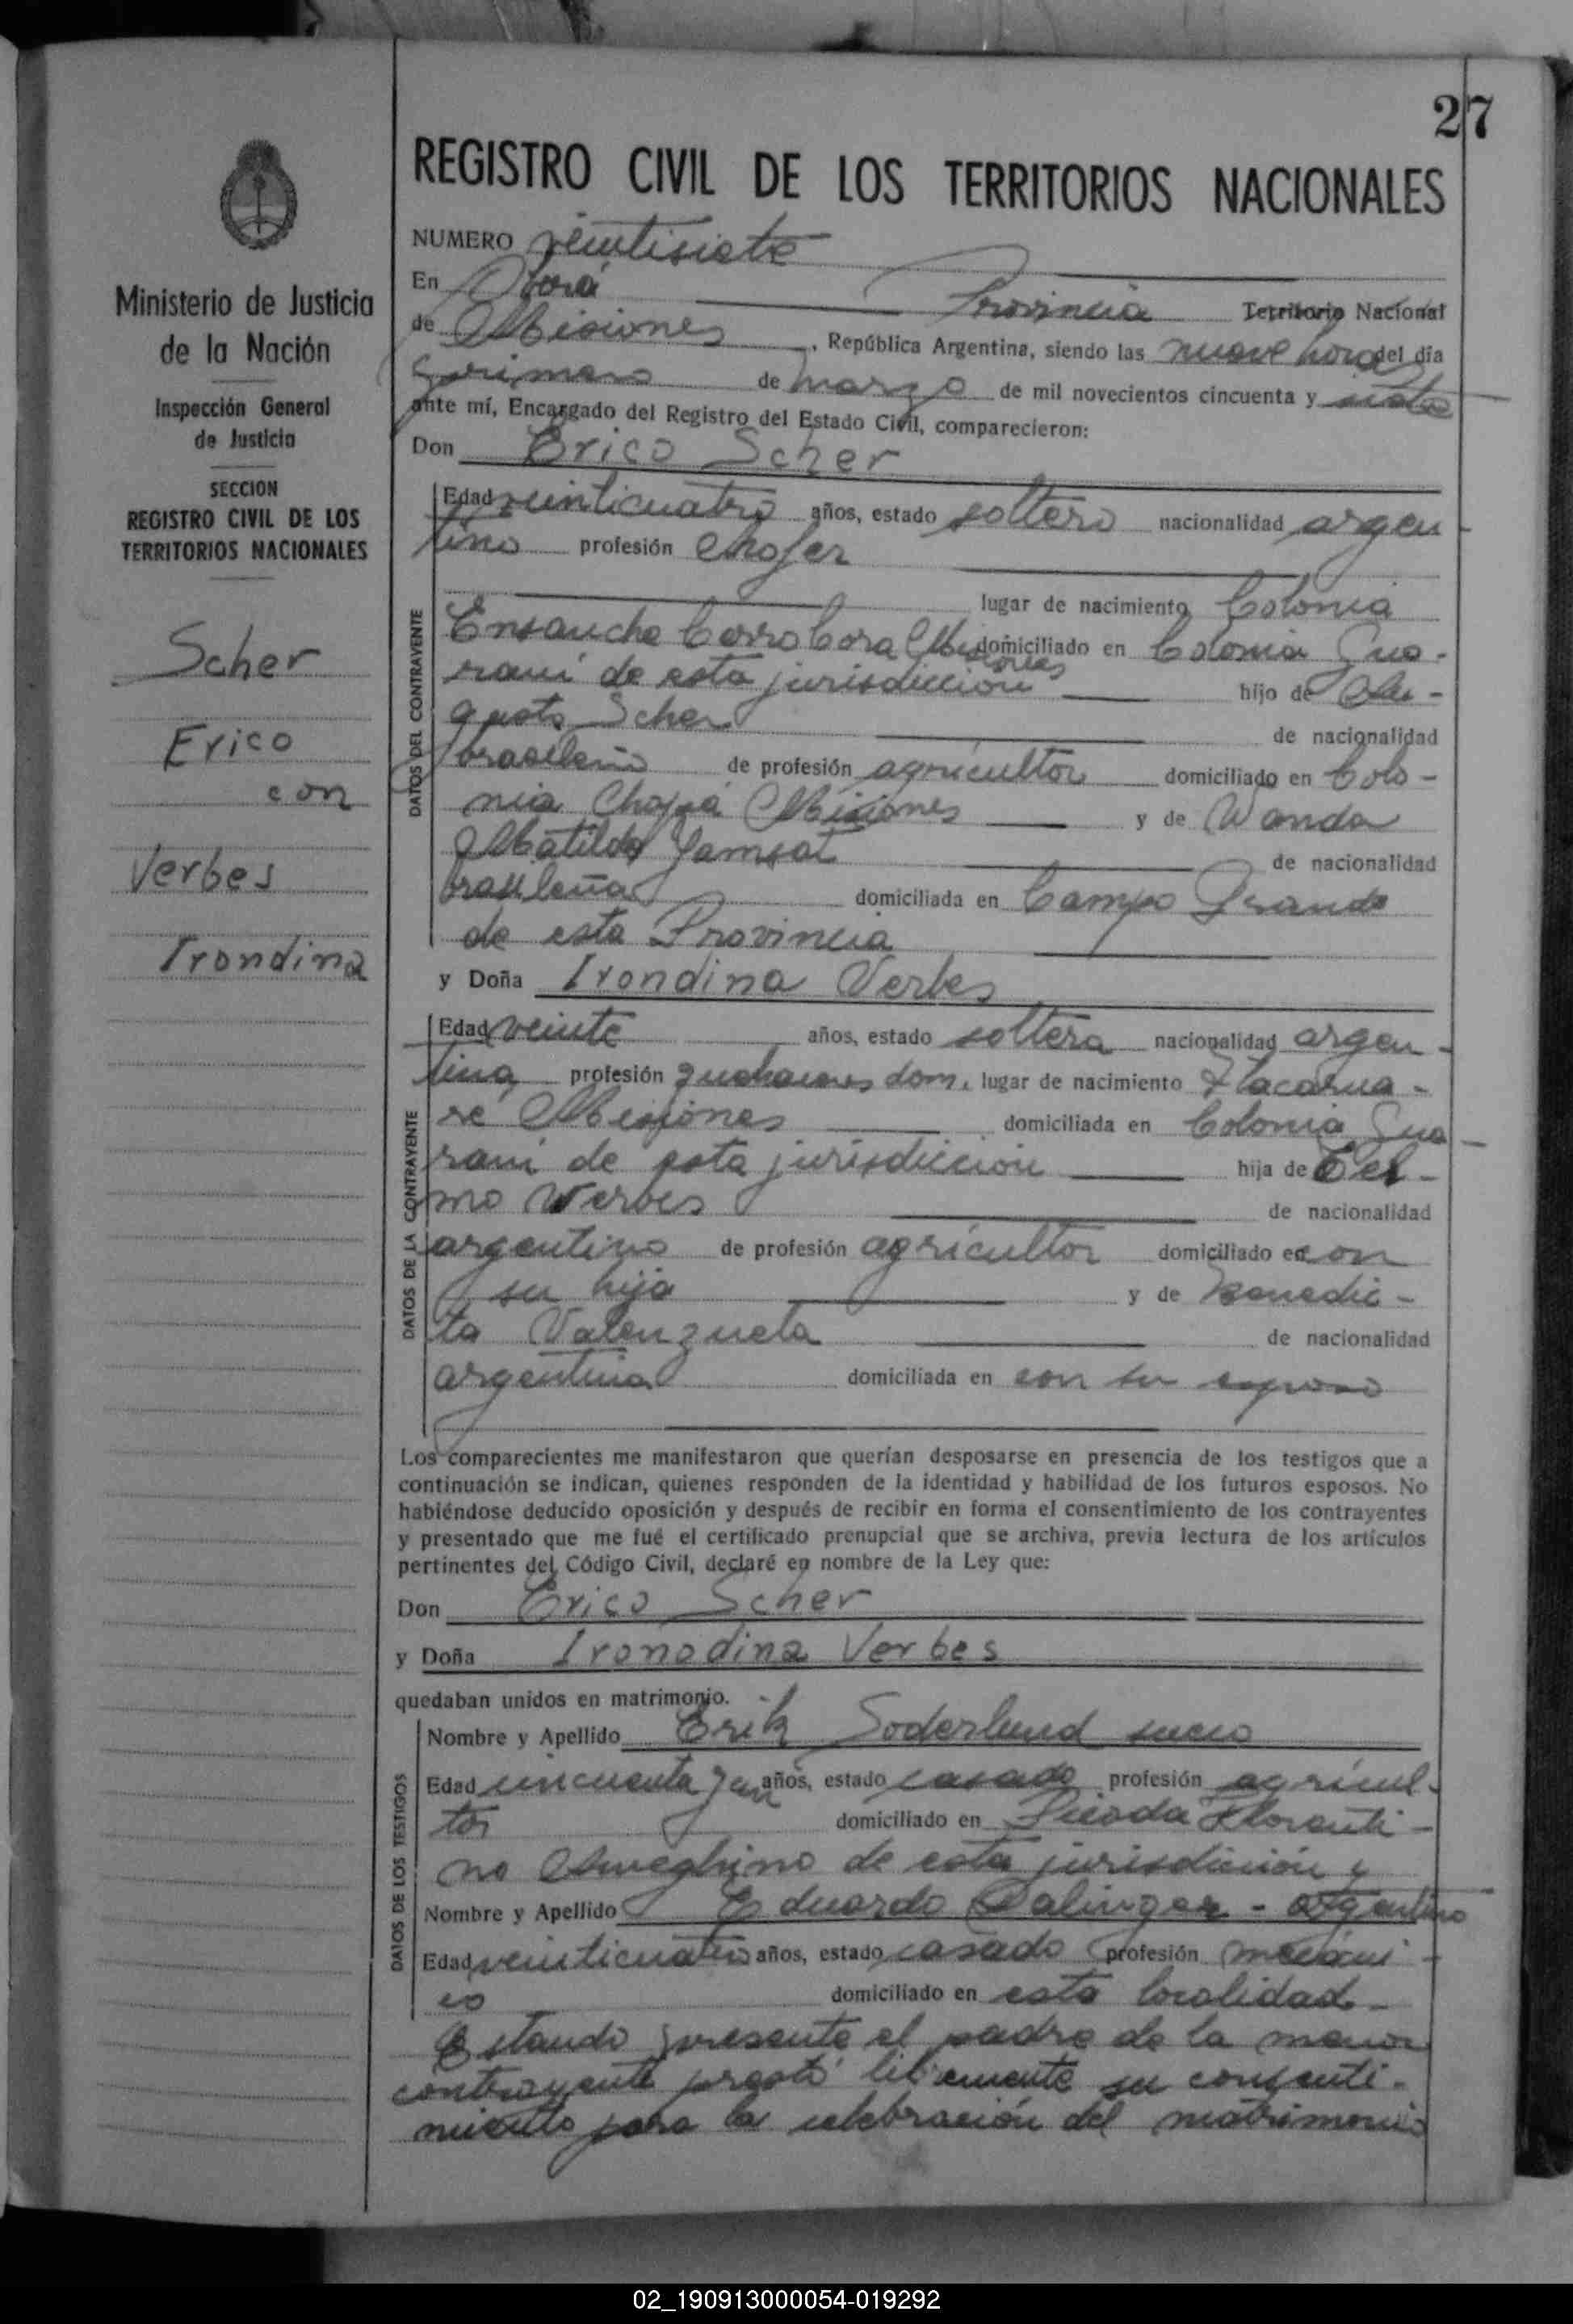 27
REGISTRO CIVIL DE LOS TERRITORIOS NACIONALES
NUMERO veintisiete
En Oberá Provincia Territorio Nacional
de Misiones, República Argentina, siendo las nueve horas del día
primero de marzo de mil novecientos cincuenta y siete
ante mí, Encargado del Registro del Estado Civil, comparecieron:
Don Erico Scher
Edad veinticuatro años, estado soltero nacionalidad argen
tino profesión chofer
lugar de nacimiento Colonia
Ensanche Cerro Cora Misiones domiciliado en Colonia Gua-
raní de esta jurisdicción hijo de Au-
gusto Scher
de nacionalidad
brasileño de profesión agricultor domiciliado en Colo-
nia Chapá Misiones y de Wanda
Matilde
de nacionalidad
brasileña domiciliada en Campo Grande
de esta Provincia
y Doña Irondina Verbes
Edad veinte años, estado soltera nacionalidad argen-
tina profesión quehaceres dom. lugar de nacimiento Itacarua-
ré Misiones domiciliada en Colonia Gua-
raní de esta jurisdicción hija de Tel-
mo Verbes
de nacionalidad
argentino de profesión agricultor domiciliado en con
su hija y de Benedic-
ta Valenzuela
de nacionalidad
argentina domiciliada en con su esposo
DATOS DEL CONTRAYENTE
DATOS DE LA CONTRAYENTE
Los comparecientes me manifestaron que querían desposarse en presencia de los testigos que a
continuación se indican, quienes responden de la identidad y habilidad de los futuros esposos. No
habiéndose deducido oposición y después de recibir en forma el consentimiento de los contrayentes
y presentado que me fué el certificado prenupcial que se archiva, previa lectura de los artículos
pertinentes del Código Civil, declaré en nombre de la Ley que:
Don Erico Scher
y Doña Ironodina Verbes
quedaban unidos en matrimonio.
Nombre y Apellido Erik Soderlund sueco
Edad cincuenta y un años, estado casado profesión agricul-
tor domiciliado en Picada Florenti-
no Ameghino de esta jurisdicción y
Nombre y Apellido Eduardo Dalinger - argentino
Edad veinticuatro años, estado casado profesión mecáni-
co domiciliado en esta localidad-
DATOS DE LOS TESTIGOS
Estando presente el padre de la menor
contrayente prestó libremente su consenti-
miento para la celebración del matrimonio
Ministerio de Justicia
de la Nación
Inspección General
de Justicia
SECCION
REGISTRO CIVIL DE LOS
TERRITORIOS NACIONALES
Scher
Erico
con
Verbes
Irondina
02_190913000054-019292